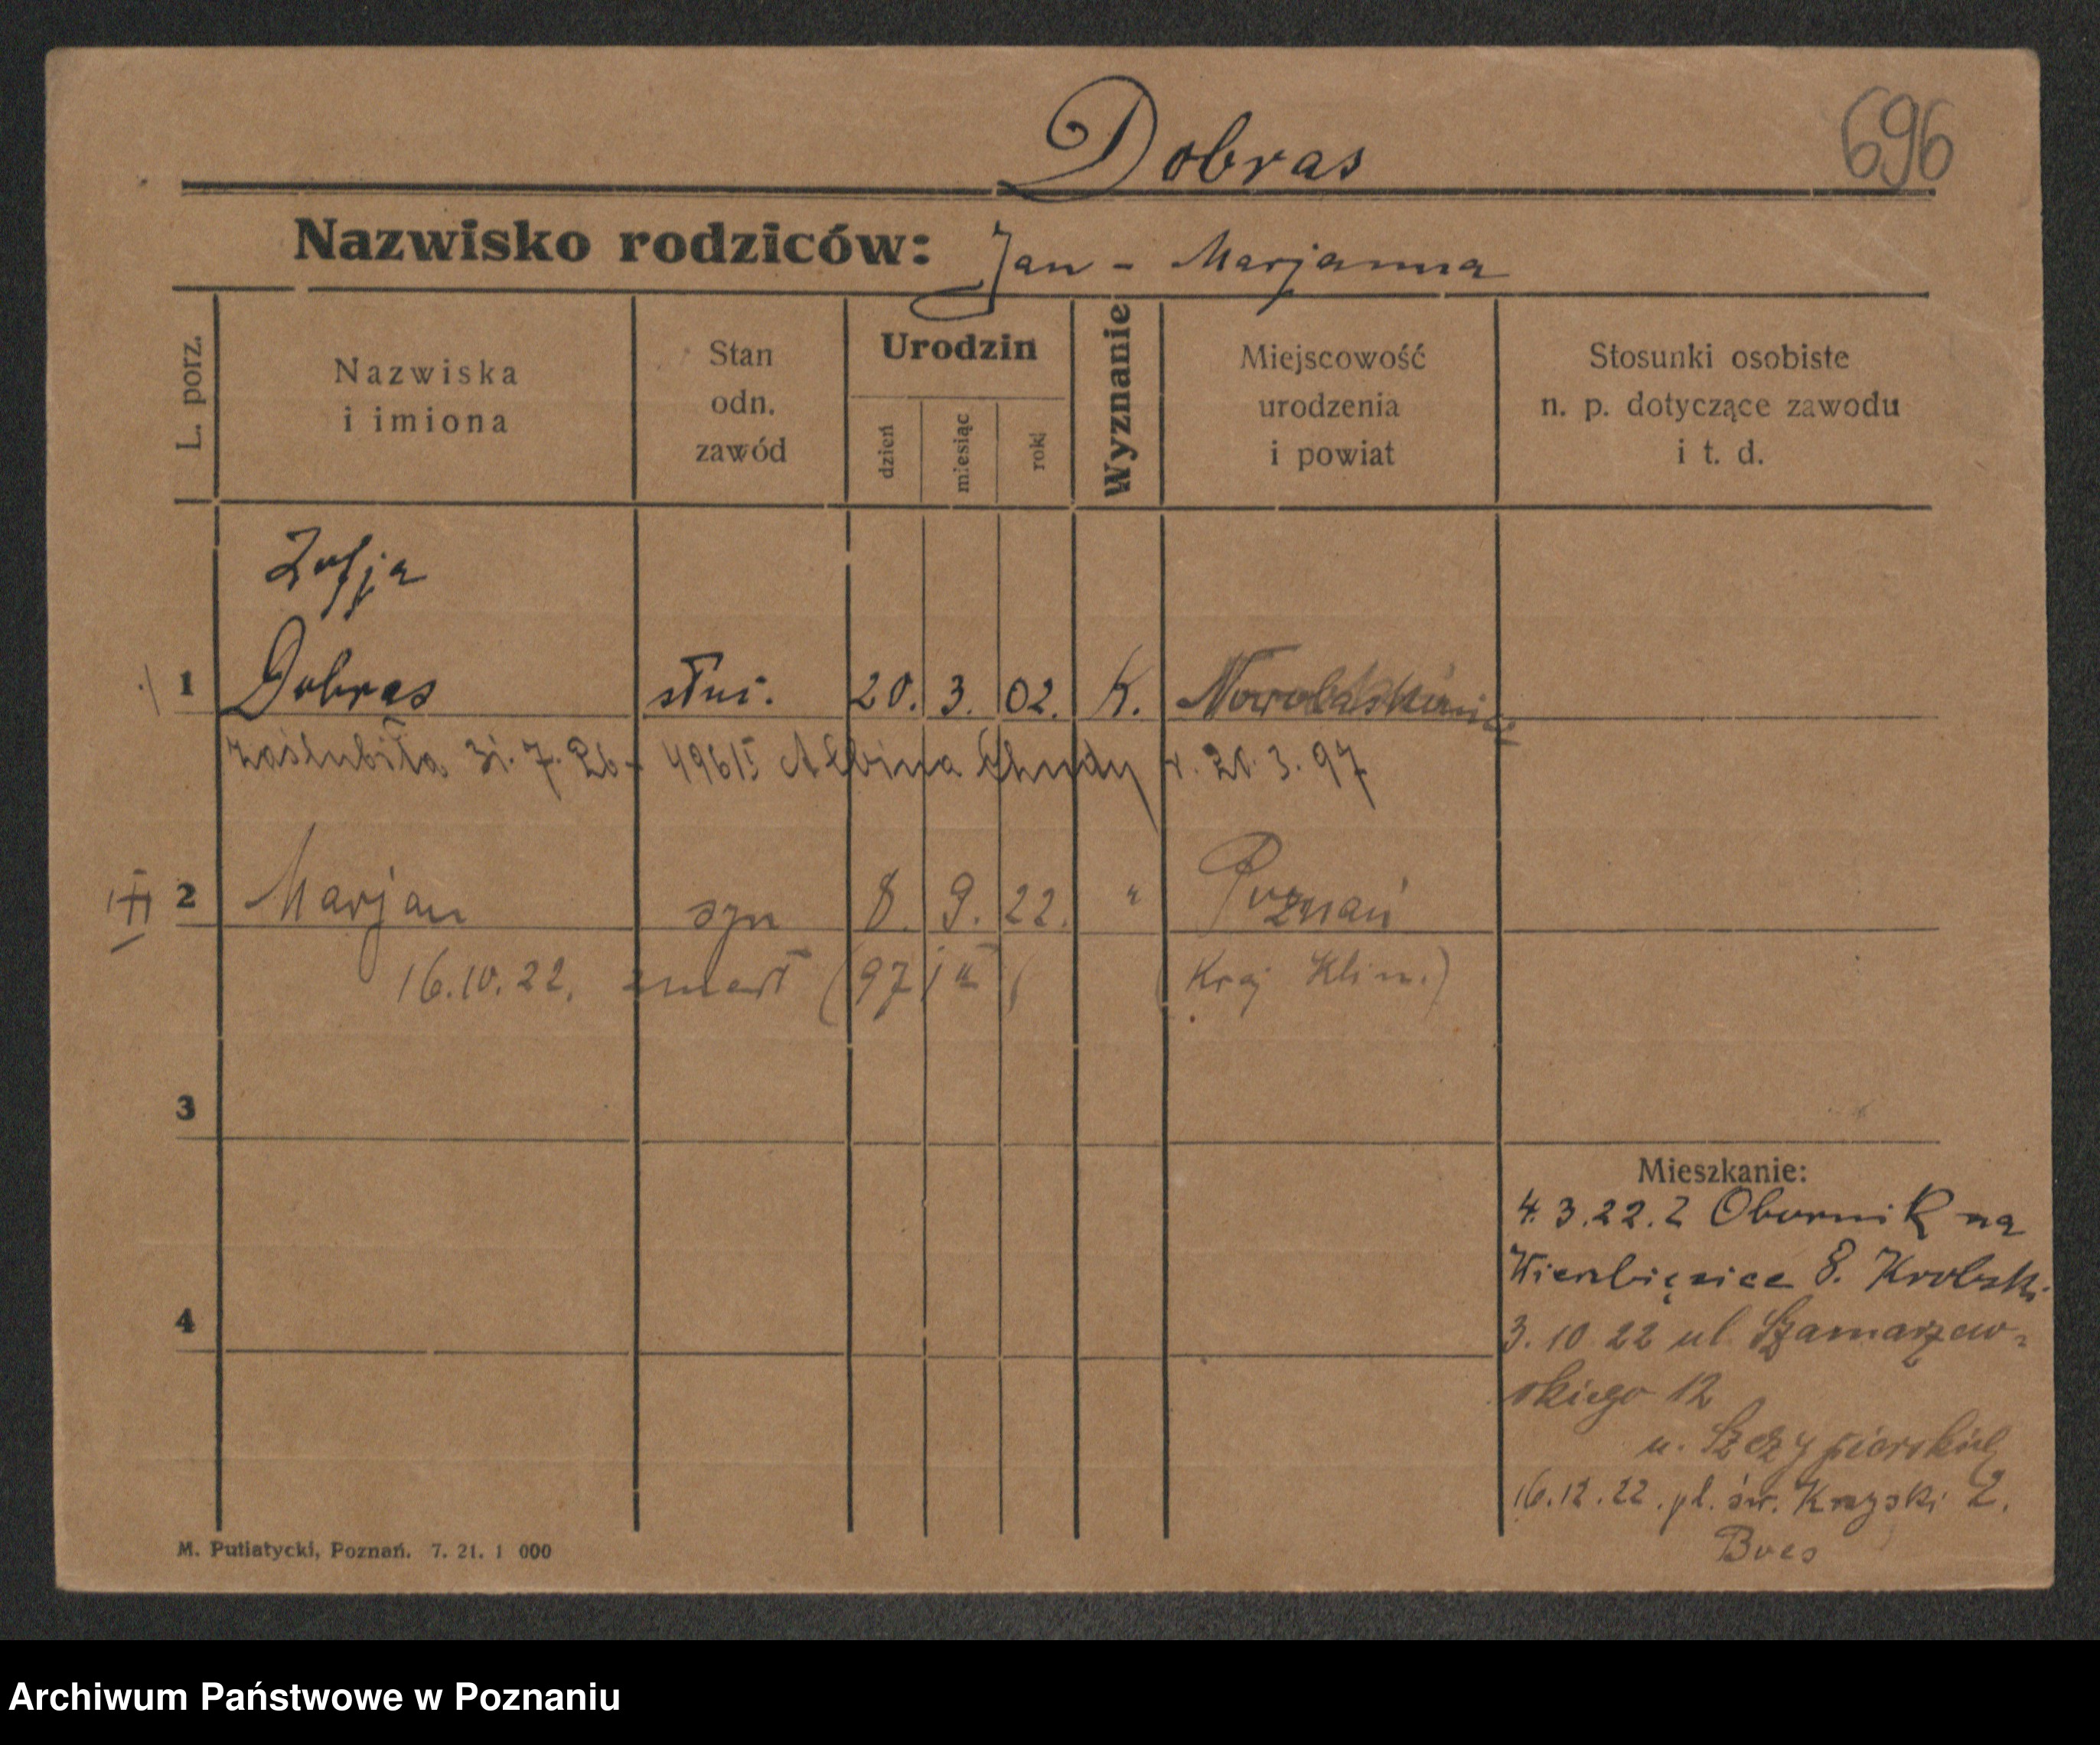 Dobras 696
Nazwisko rodziców: Jan - Marjanna
L. porz.
Nazwiska
i imiona
Stan
odn.
zawód
Urodzin
dzień
miesiąc
rok
Wyznanie
Miejscowość
urodzenia
i powiat
Stosunki osobiste
n. p. dotyczące zawodu
i t. d.
Zofja
1 Dobras służ. 20. 3. 02. K.
zaślubiła 31. 7. 26 49615 Albina Chudy 3. 97
2 Marjan syn 8. 9. 22. " Poznań
16.10.22. zmarł (97
3
4
Mieszkanie:
4.3.22. z Obornik na
Wierzbięcice 8. Krobski
3.10 22 ul Szamarzew-
skiego 12
u. Szczypiorskiej
16.12.22. pl. św. Krzyski 2.
M. Putiatycki, Poznań. 7. 21. 1 000
Archiwum Państwowe w Poznaniu